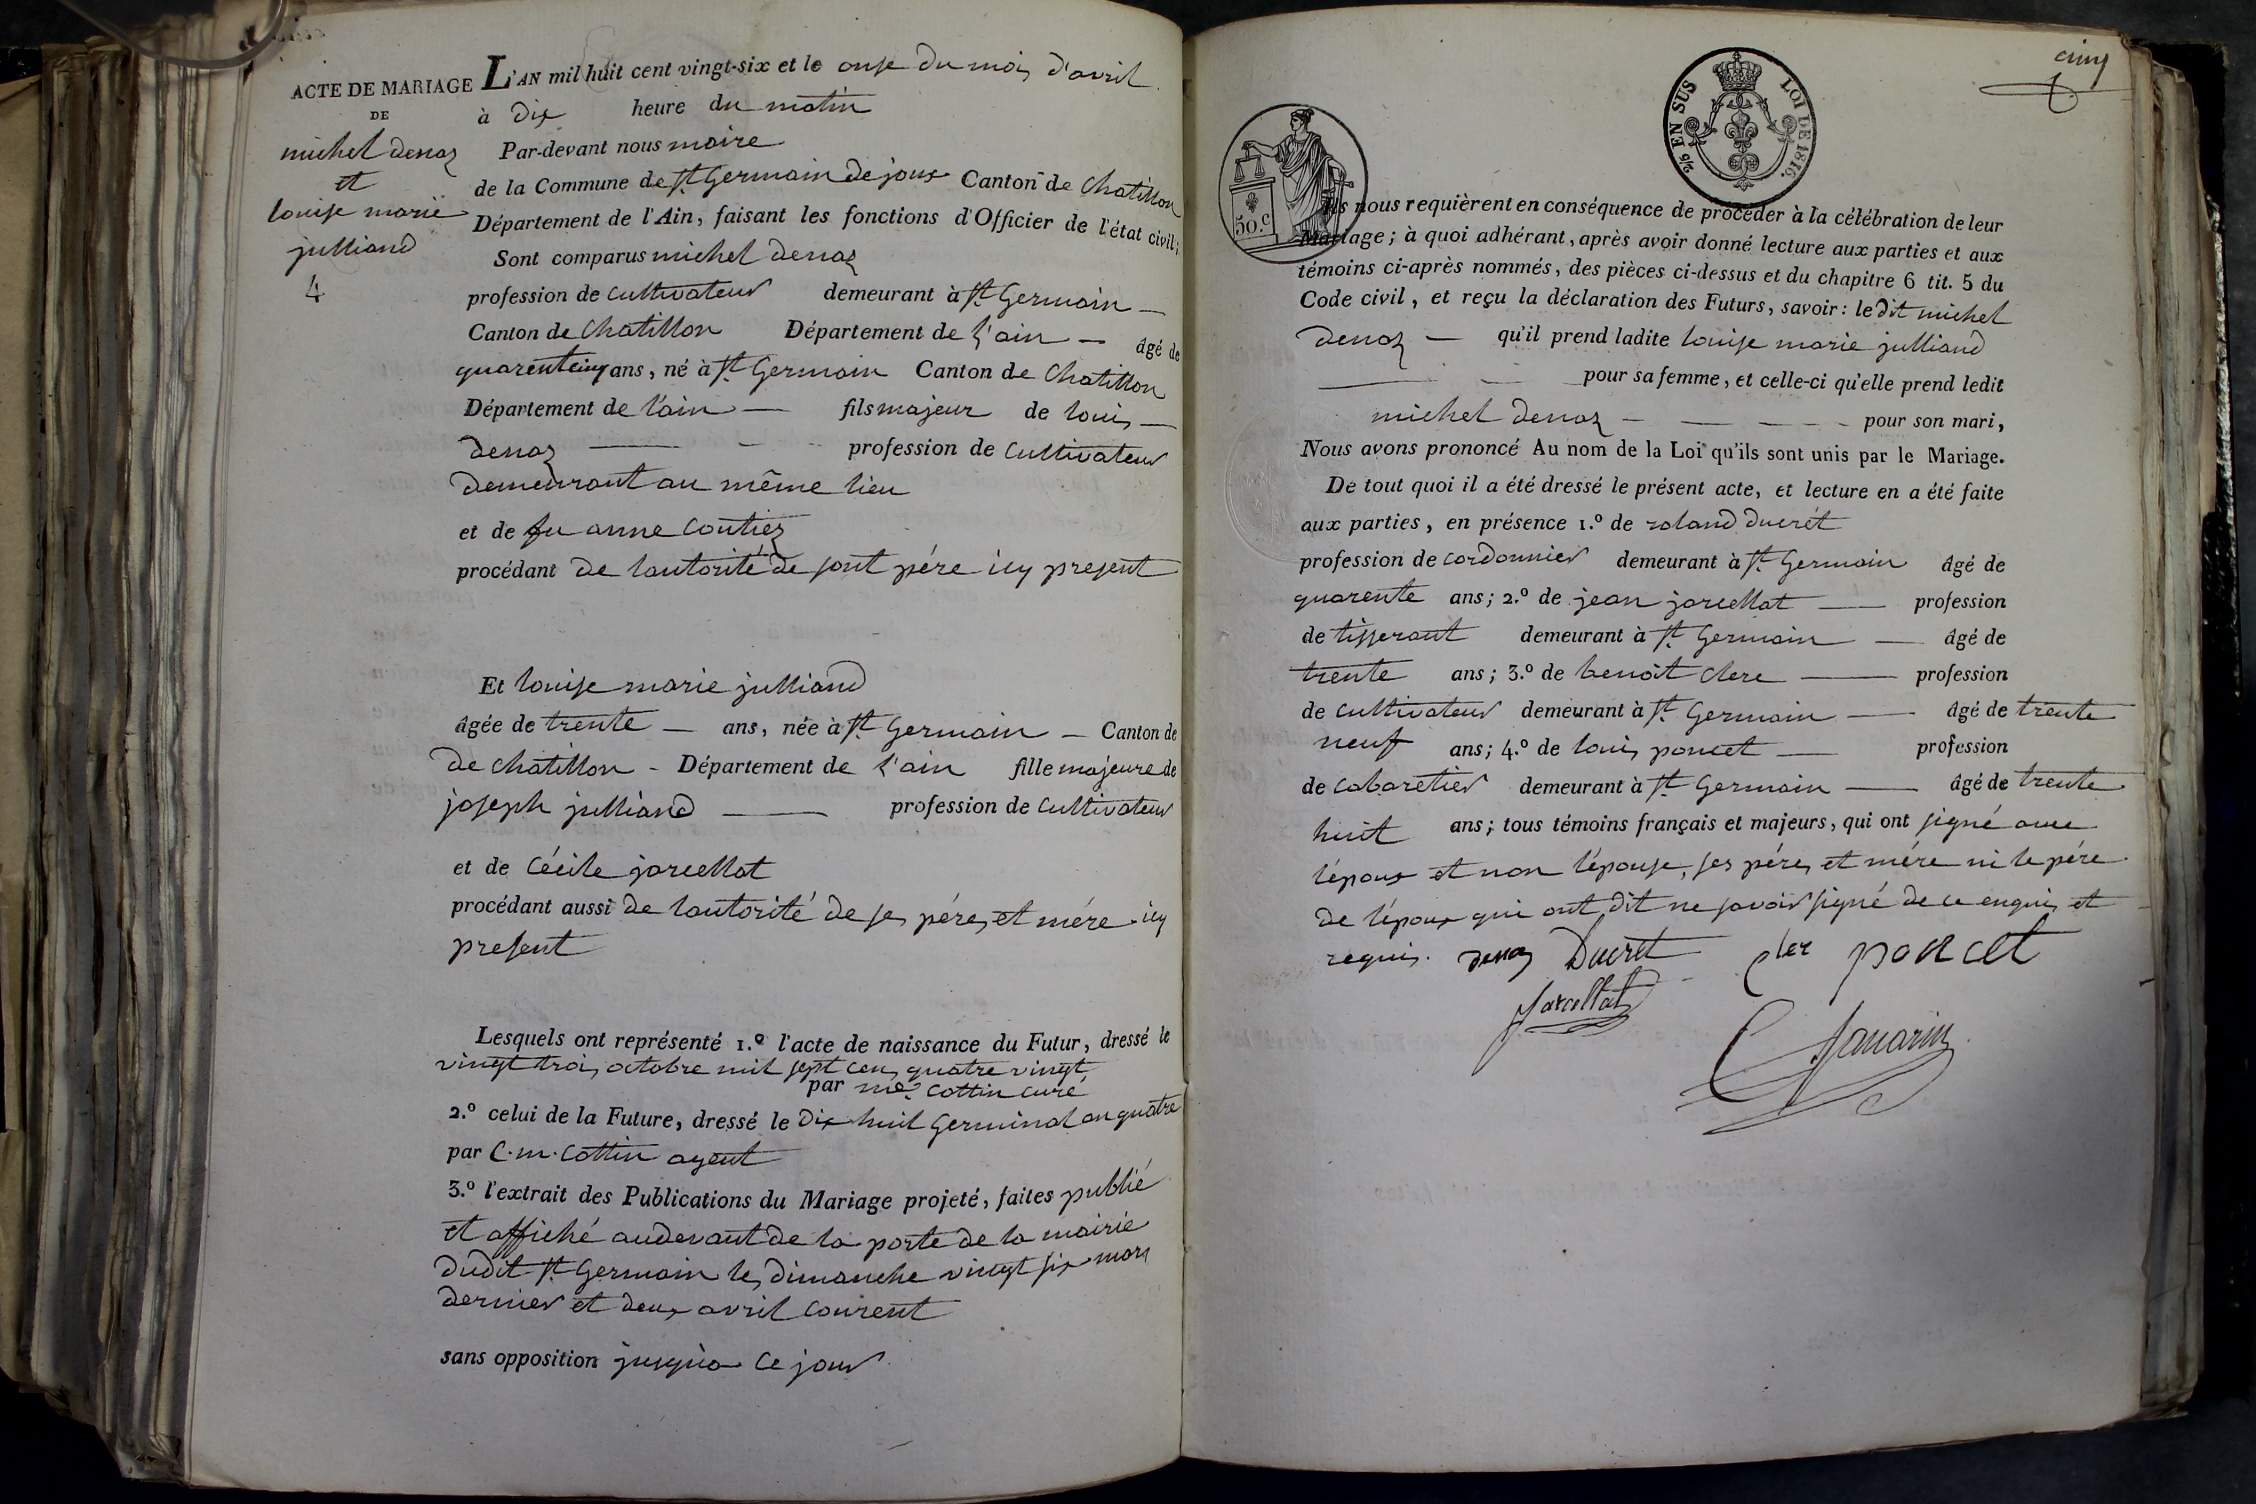 ACTE DE MARIAGE
DE
michel denaz
et
louise marie
julliand
4
L'AN mil huit cent vingt-six et le onse du mois d'avril
à dix heure du matin
Par-devant nous maire
de la Commune de St. Germain de joux Canton de Chatillon
Département de l'Ain, faisant les fonctions d'Officier de l'état civil;
Sont comparus michel denaz
profession de cultivateur demeurant à St. Germain
Canton de Chatillon Département de l'ain âgé de
quarentecinq ans, né à St. Germain Canton de Chatillon
Département de l'ain fils majeur de louis
denaz profession de cultivateur
demeurant au même lieu
et de fu anne coutiez
procédant de lautorité de sont pére icy present
Et louise marie julliand
âgée de trente ans, née à St. Germain Canton de
de chatillon Département de l'ain fille majeure de
joseph julliand profession de cultivateur
et de Cécile jarcellat
procédant aussi de lautorité de ses péres et mére icy
present
Lesquels ont représenté 1.º l'acte de naissance du Futur, dressé le
vingt trois octobre mil sept cens quatre vingt
par me. cottin curé
2.º celui de la Future, dressé le dix huit Germinal an quatre
par C. m. cottin agent
3.º l'extrait des Publications du Mariage projeté, faites publié
et affiché audevant de la porte de la mairie
dudit St. Germain les dimanche vingt six mars
dernier et deux avril courent
sans opposition jusqua ce jour
cinq
2/5 EN SUS LOI DE 1816.
50.c
Ils nous requièrent en conséquence de procéder à la célébration de leur
Mariage; à quoi adhérant, après avoir donné lecture aux parties et aux
témoins ci-après nommés, des pièces ci-dessus et du chapitre 6 tit. 5 du
Code civil, et reçu la déclaration des Futurs, savoir: le dit michel
denaz qu'il prend ladite louise marie julliand
pour sa femme, et celle-ci qu'elle prend ledit
michel denaz pour son mari,
Nous avons prononcé Au nom de la Loi qu'ils sont unis par le Mariage.
De tout quoi il a été dressé le présent acte, et lecture en a été faite
aux parties, en présence 1.º de roland ducrét
profession de cordonnier demeurant à St. Germain âgé de
quarente ans; 2.º de jean jarcellat profession
de tisserant demeurant à St. Germain âgé de
trente ans; 3.º de benoit clerc profession
de cultivateur demeurant à St. Germain âgé de trente
neuf ans; 4.º de louis poncet profession
de cabaretier demeurant à St. Germain âgé de trente
huit ans; tous témoins français et majeurs, qui ont signé avec
l'époux et non l'épouse, ses péres et mére ni le pére
de l'époux qui ont dit ne savoir signé de ce enquis et
requis. denaz Ducret cler poncet
Jarcellat